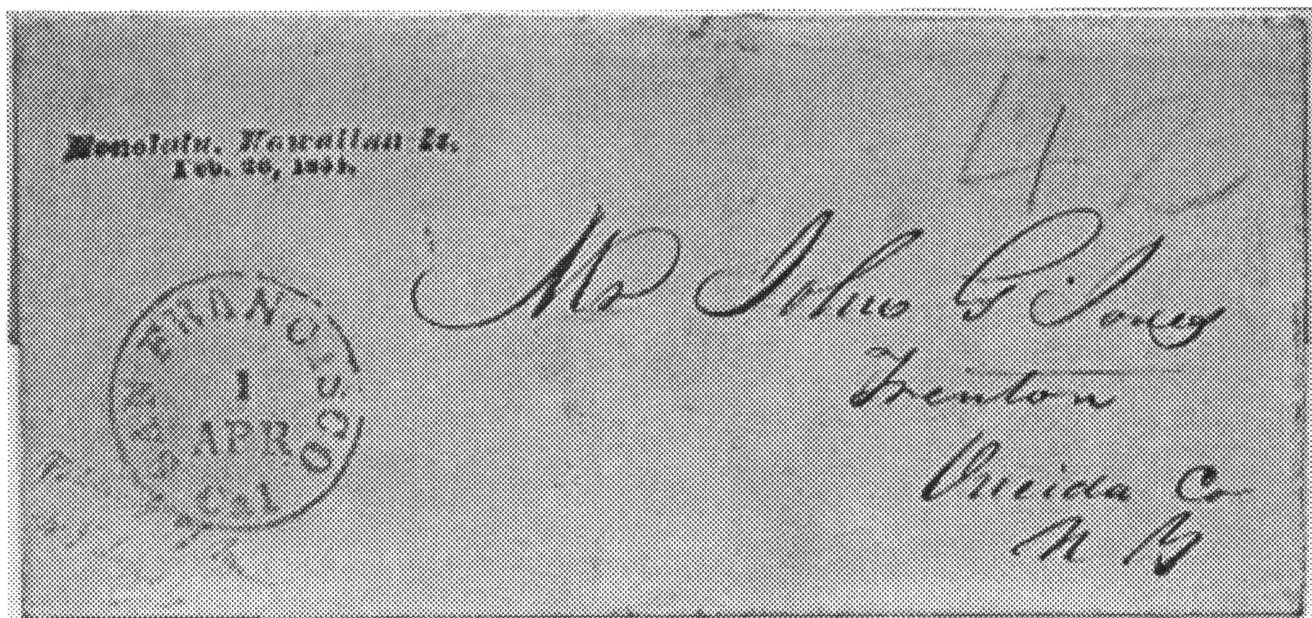 Honolulu, Hawaiian Is.
Feb. 26, 1851.
40
SAN FRANCISCO
1
APR
Cal
Mr John G Jones
Trenton
Oneida Co
N Y